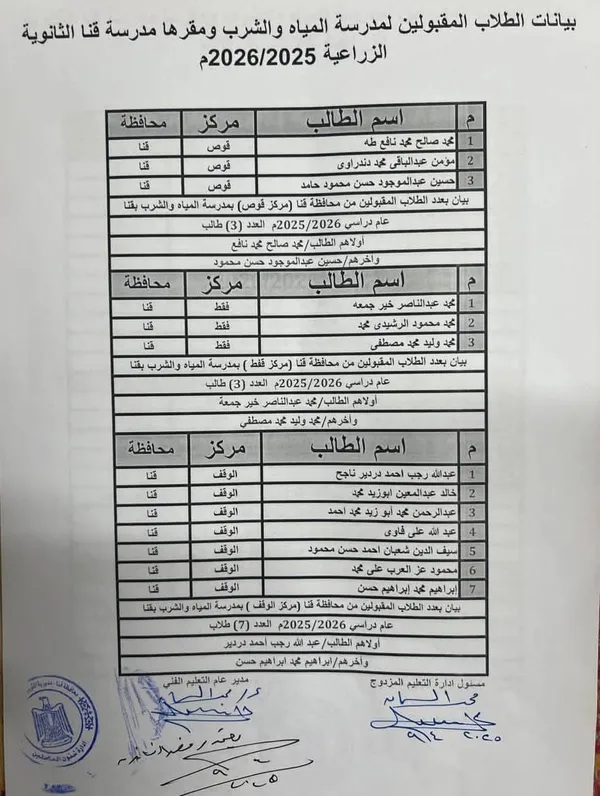 بيانات الطلاب المقبولين لمدرسة المياه والشرب ومقرها مدرسة قنا الثانوية
الزراعية 2026/2025م
م اسم الطالب مركز محافظة
1 محمد صالح محمد نافع طه قوص قنا
2 مؤمن عبدالباقى محمد دندراوى قوص قنا
3 حسين عبدالموجود حسن محمود حامد قوص قنا
بيان بعدد الطلاب المقبولين من محافظة قنا (مركز قوص) بمدرسة المياه والشرب بقنا
عام دراسي 2025/2026م العدد (3) طالب
أولاهم الطالب/محمد صالح محمد نافع
وأخرهم/حسين عبدالموجود حسن محمود
م اسم الطالب مركز محافظة
1 محمد عبدالناصر خير جمعه فقط قنا
2 محمد محمود الرشيدى محمد فقط قنا
3 محمد وليد محمد مصطفى فقط قنا
بيان بعدد الطلاب المقبولين من محافظة قنا (مركز قفط ) بمدرسة المياه والشرب بقنا
عام دراسي 2025/2026م العدد (3) طالب
أولاهم الطالب/محمد عبدالناصر خير جمعة
وأخرهم/محمد وليد محمد مصطفي
م اسم الطالب مركز محافظة
1 عبدالله رجب احمد دردير ناجح الوقف قنا
2 خالد عبدالمعين ابوزيد محمد الوقف قنا
3 عبدالرحمن محمد أبو زيد محمد احمد الوقف قنا
4 عبد الله على فاوى الوقف قنا
5 سيف الدين شعبان احمد حسن محمود الوقف قنا
6 محمود عز العرب على محمد الوقف قنا
7 إبراهيم محمد إبراهيم حسن الوقف قنا
بيان بعدد الطلاب المقبولين من محافظة قنا (مركز الوقف ) بمدرسة المياه والشرب بقنا
عام دراسي 2025/2026م العدد (7) طلاب
أولاهم الطالب/عبد الله رجب أحمد دردير
وأخرهم/ابراهيم محمد ابراهيم حسن
مسئول ادارة التعليم المزدوج
مدير عام التعليم الفني
٢٠٢٥/٩/٤